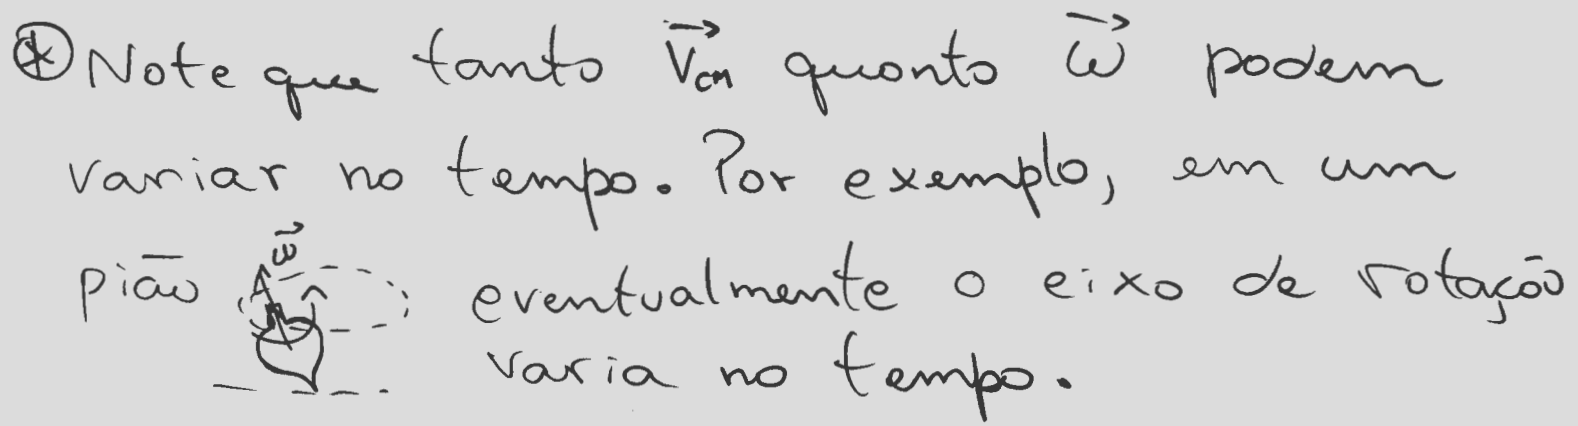 ⊛ Note que tanto V⃗cm quanto ω⃗ podem
variar no tempo. Por exemplo, em um
pião ω⃗ eventualmente o eixo de rotação
varia no tempo.